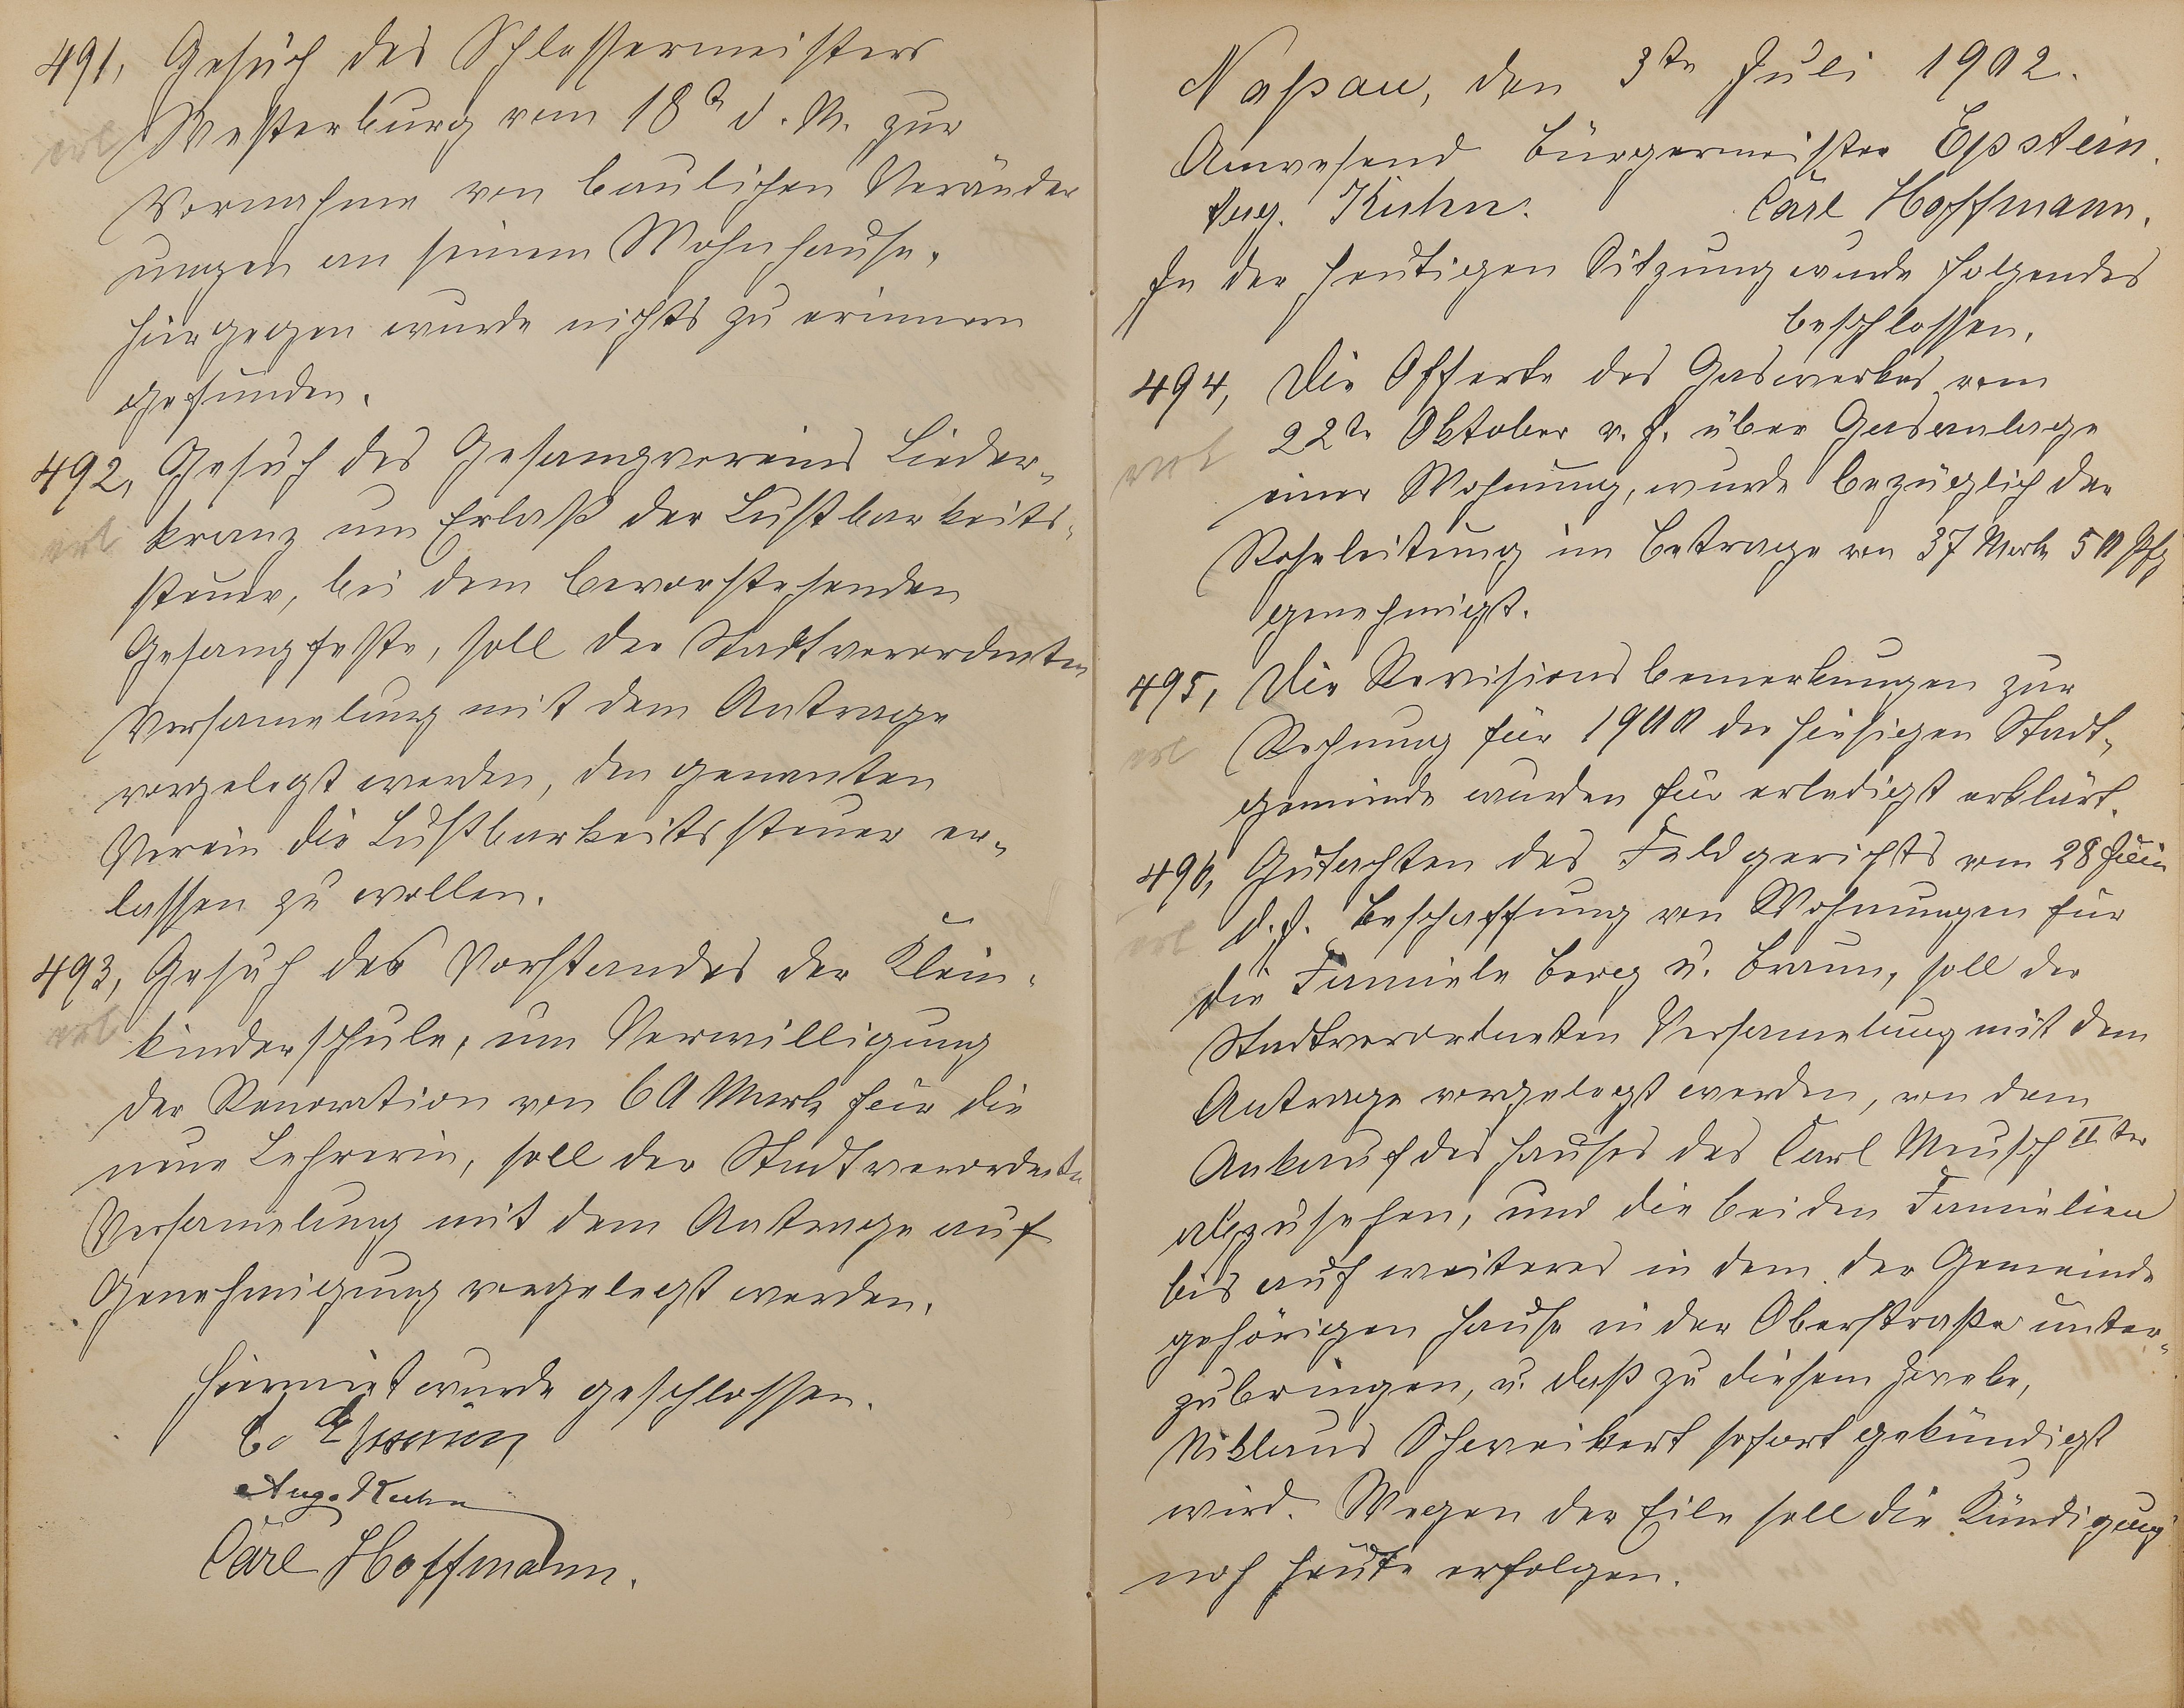 491, Gesuch des Schlossermeisters
erl Westerburg vom 18t d. M. zur
Vornahme von baulichen Veränder
ungen an seinem Wohnhause,
hiergegen wurde nichts zu erinnern
gefunden.
492, Gesuch des Gesangvereins Lieder-
erl kranz um Erlaß der Lustbarkeits-
steuer, bei dem bevorstehenden
Gesangfeste, soll der Stadtverordneten
Versamelung mit dem Antrage
vorgelegt werden, den genanten
Verein die Lustbarkeitssteuer er-
lassen zu wollen.
493, Gesuch des Vorstandes der Klein-
erl kinderschule, um Verwilligung
der Renovation von 60 Mark für die
neue Lehrerin, soll der Stadtverordneten
Versamelung mit dem Antrage auf
Genehmigung vorgelegt werden.
Hiermit wurde geschlossen.
Epstein
Aug. Kuhn
Carl Hoffmann.
Naßau, den 3tn Juli 1902.
Anwesend Bürgermeister Epstein.
Aug. Kuhn. Carl Hoffmann.
In der heutigen Sitzung wurde folgendes
beschlossen.
494, Die Offerte des Gaswerkes vom
erl 22tn Oktober v. J. über Gasanlage
einer Wohnung, wurde bezüglich der
Rohrleitung im Betrage von 37 Mark 50 Pfg
genehmigt.
495, Die Revisionsbemerkungen zur
erl Rechnung für 1900 der hiesigen Stadt-
gemeinde wurden für erledigt erklärt.
496, Gutachten des Feldgerichts vom 28 Juni
erl d. J. Beschaffung von Wohnungen für
die Famiele Berg u. Braun, soll der
Stadtverordneten Versamelung mit dem
Antrage vorgelegt werden, von dem
Ankauf des Hauses des Carl Meusch IIter
abzusehen, und die beiden Famielien
bis auf weiteres in dem der Gemeinde
gehörigen Hause in der Oberstraße unter-
zubringen, u. daß zu diesem Zweke,
Niklaus Schweikert sofort gekündigt
wird. Wegen der Eile soll die Kündigung
noch heute erfolgen.